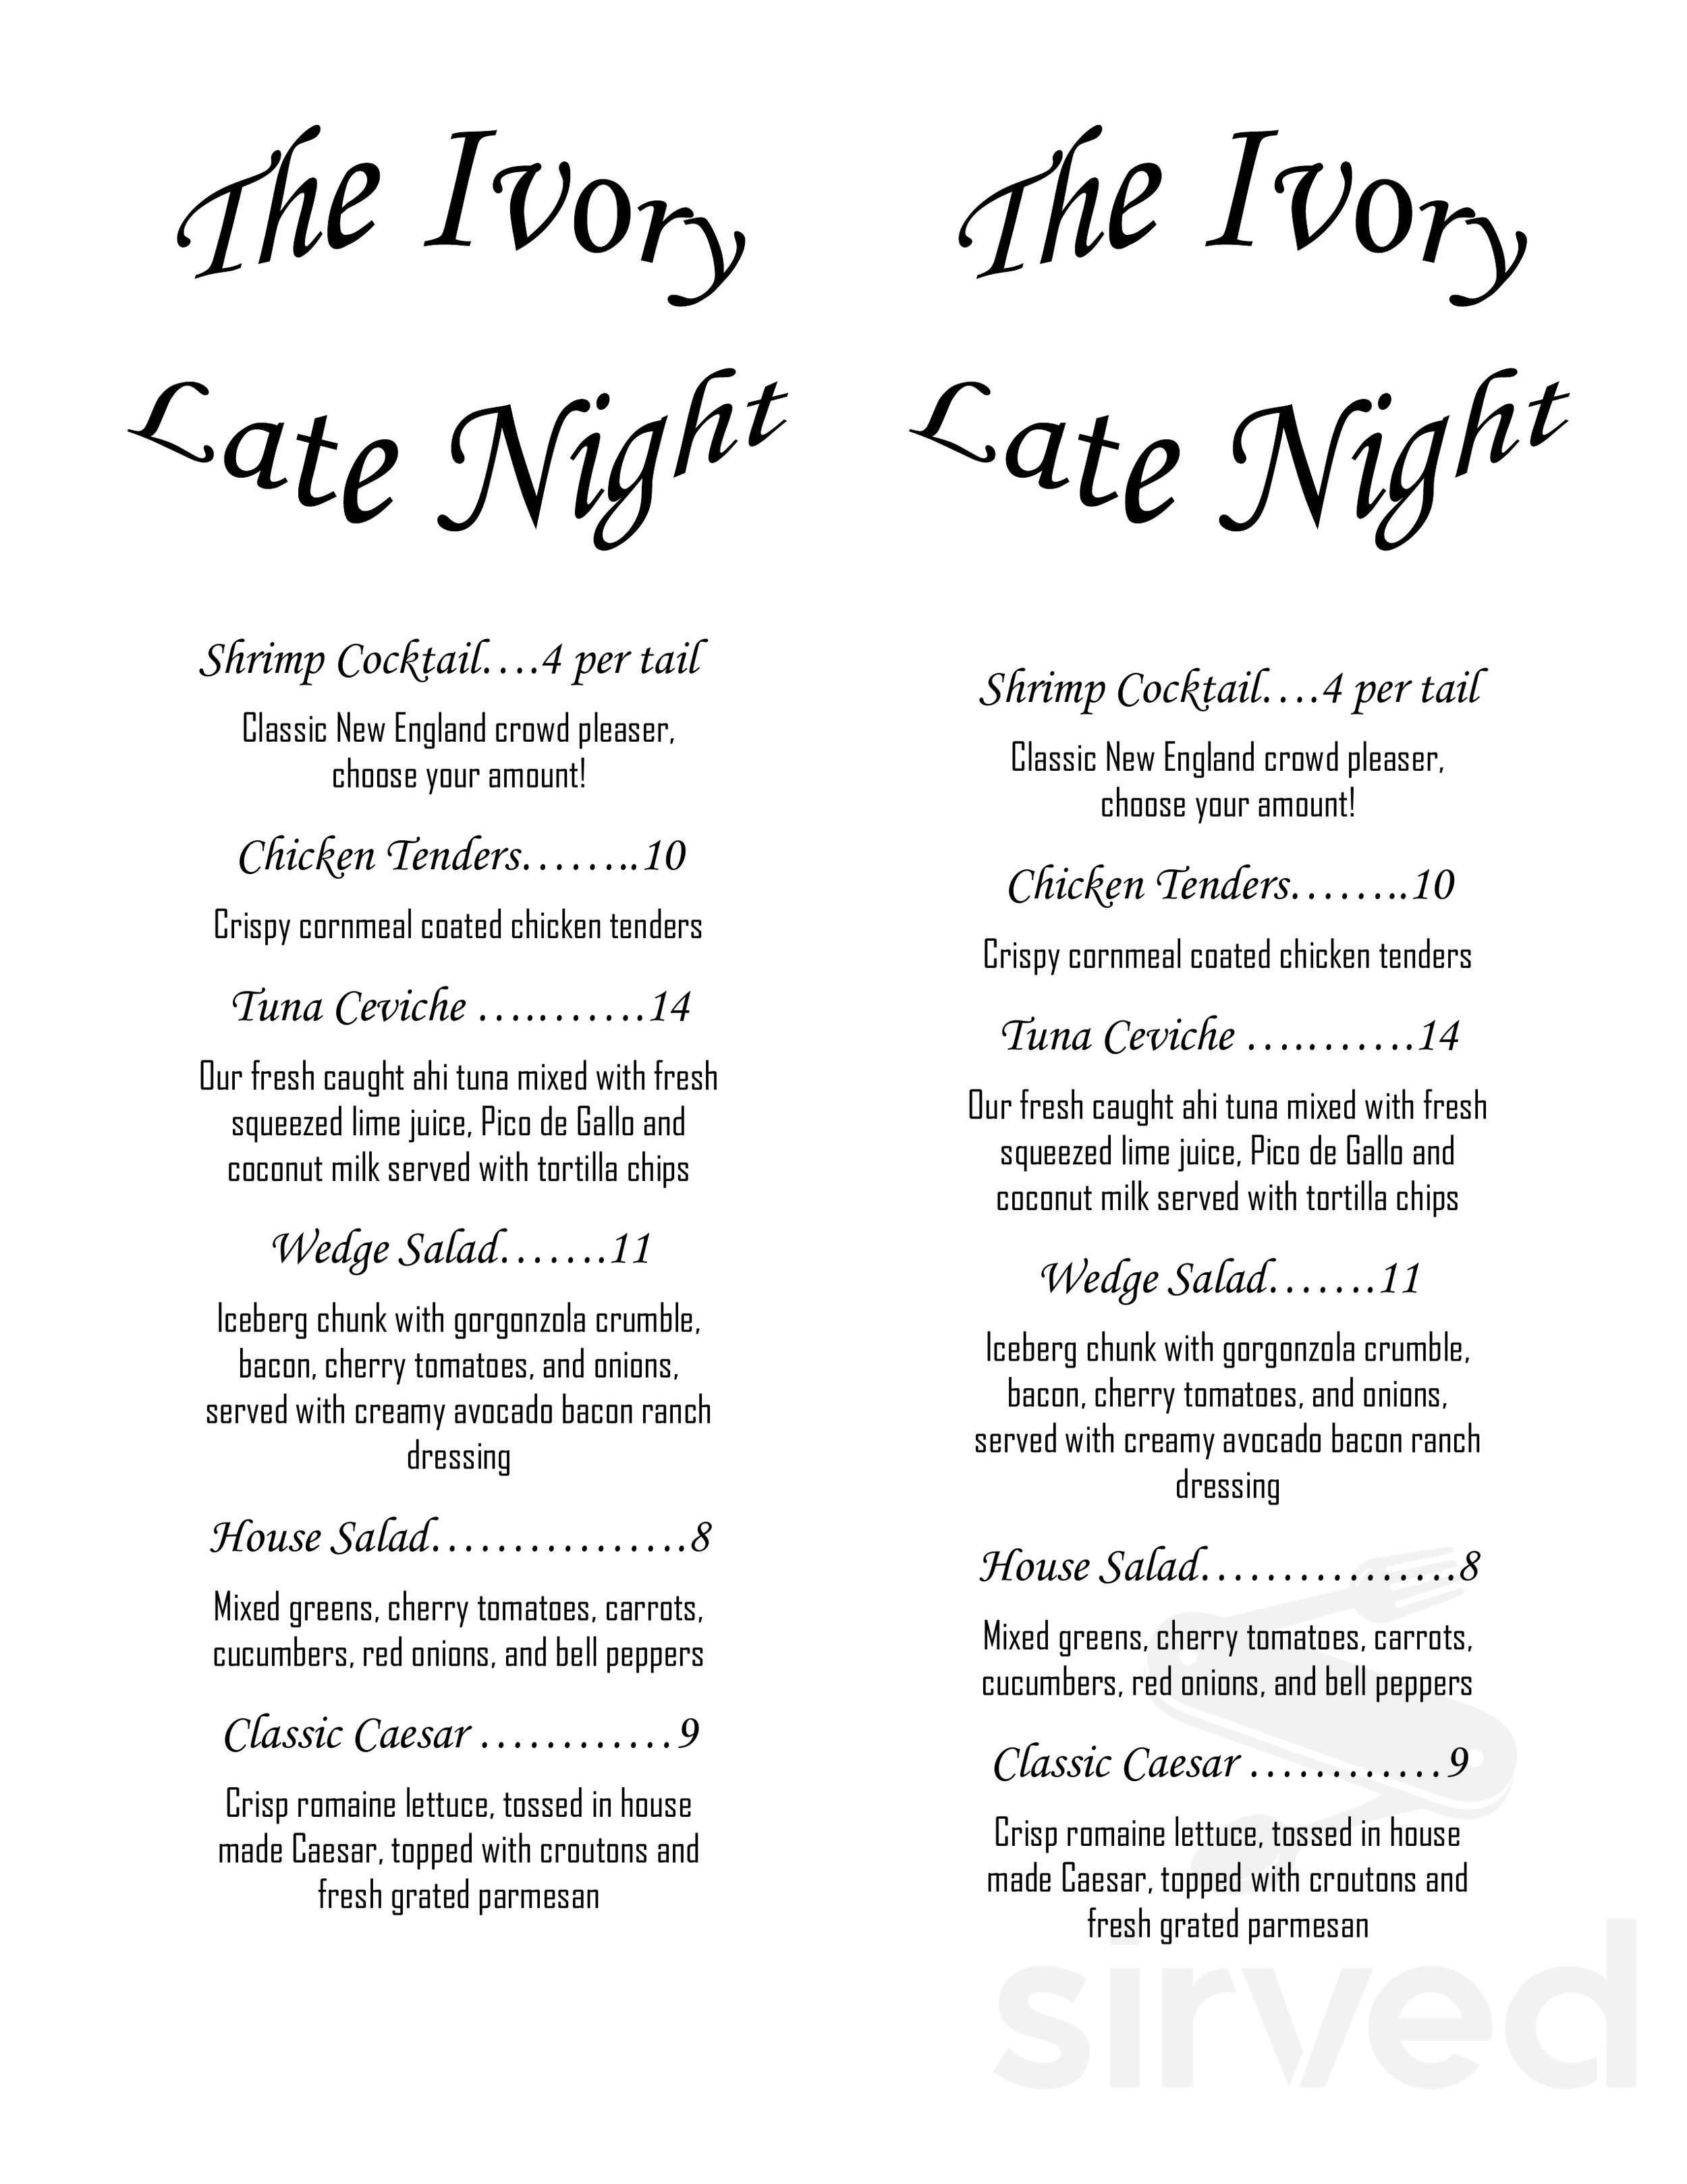 The Ivory
Late Night
Shrimp Cocktail….4 per tail
Classic New England crowd pleaser,
choose your amount!
Chicken Tenders……..10
Crispy cornmeal coated chicken tenders
Tuna Ceviche ….…….14
Our fresh caught ahi tuna mixed with fresh
squeezed lime juice, Pico de Gallo and
coconut milk served with tortilla chips
Wedge Salad…….11
Iceberg chunk with gorgonzola crumble,
bacon, cherry tomatoes, and onions,
served with creamy avocado bacon ranch
dressing
House Salad…………….8
Mixed greens, cherry tomatoes, carrots,
cucumbers, red onions, and bell peppers
Classic Caesar …………9
Crisp romaine lettuce, tossed in house
made Caesar, topped with croutons and
fresh grated parmesan
The Ivory
Late Night
Shrimp Cocktail….4 per tail
Classic New England crowd pleaser,
choose your amount!
Chicken Tenders……..10
Crispy cornmeal coated chicken tenders
Tuna Ceviche ….…….14
Our fresh caught ahi tuna mixed with fresh
squeezed lime juice, Pico de Gallo and
coconut milk served with tortilla chips
Wedge Salad…….11
Iceberg chunk with gorgonzola crumble,
bacon, cherry tomatoes, and onions,
served with creamy avocado bacon ranch
dressing
House Salad…………….8
Mixed greens, cherry tomatoes, carrots,
cucumbers, red onions, and bell peppers
Classic Caesar …………9
Crisp romaine lettuce, tossed in house
made Caesar, topped with croutons and
fresh grated parmesan
sirved